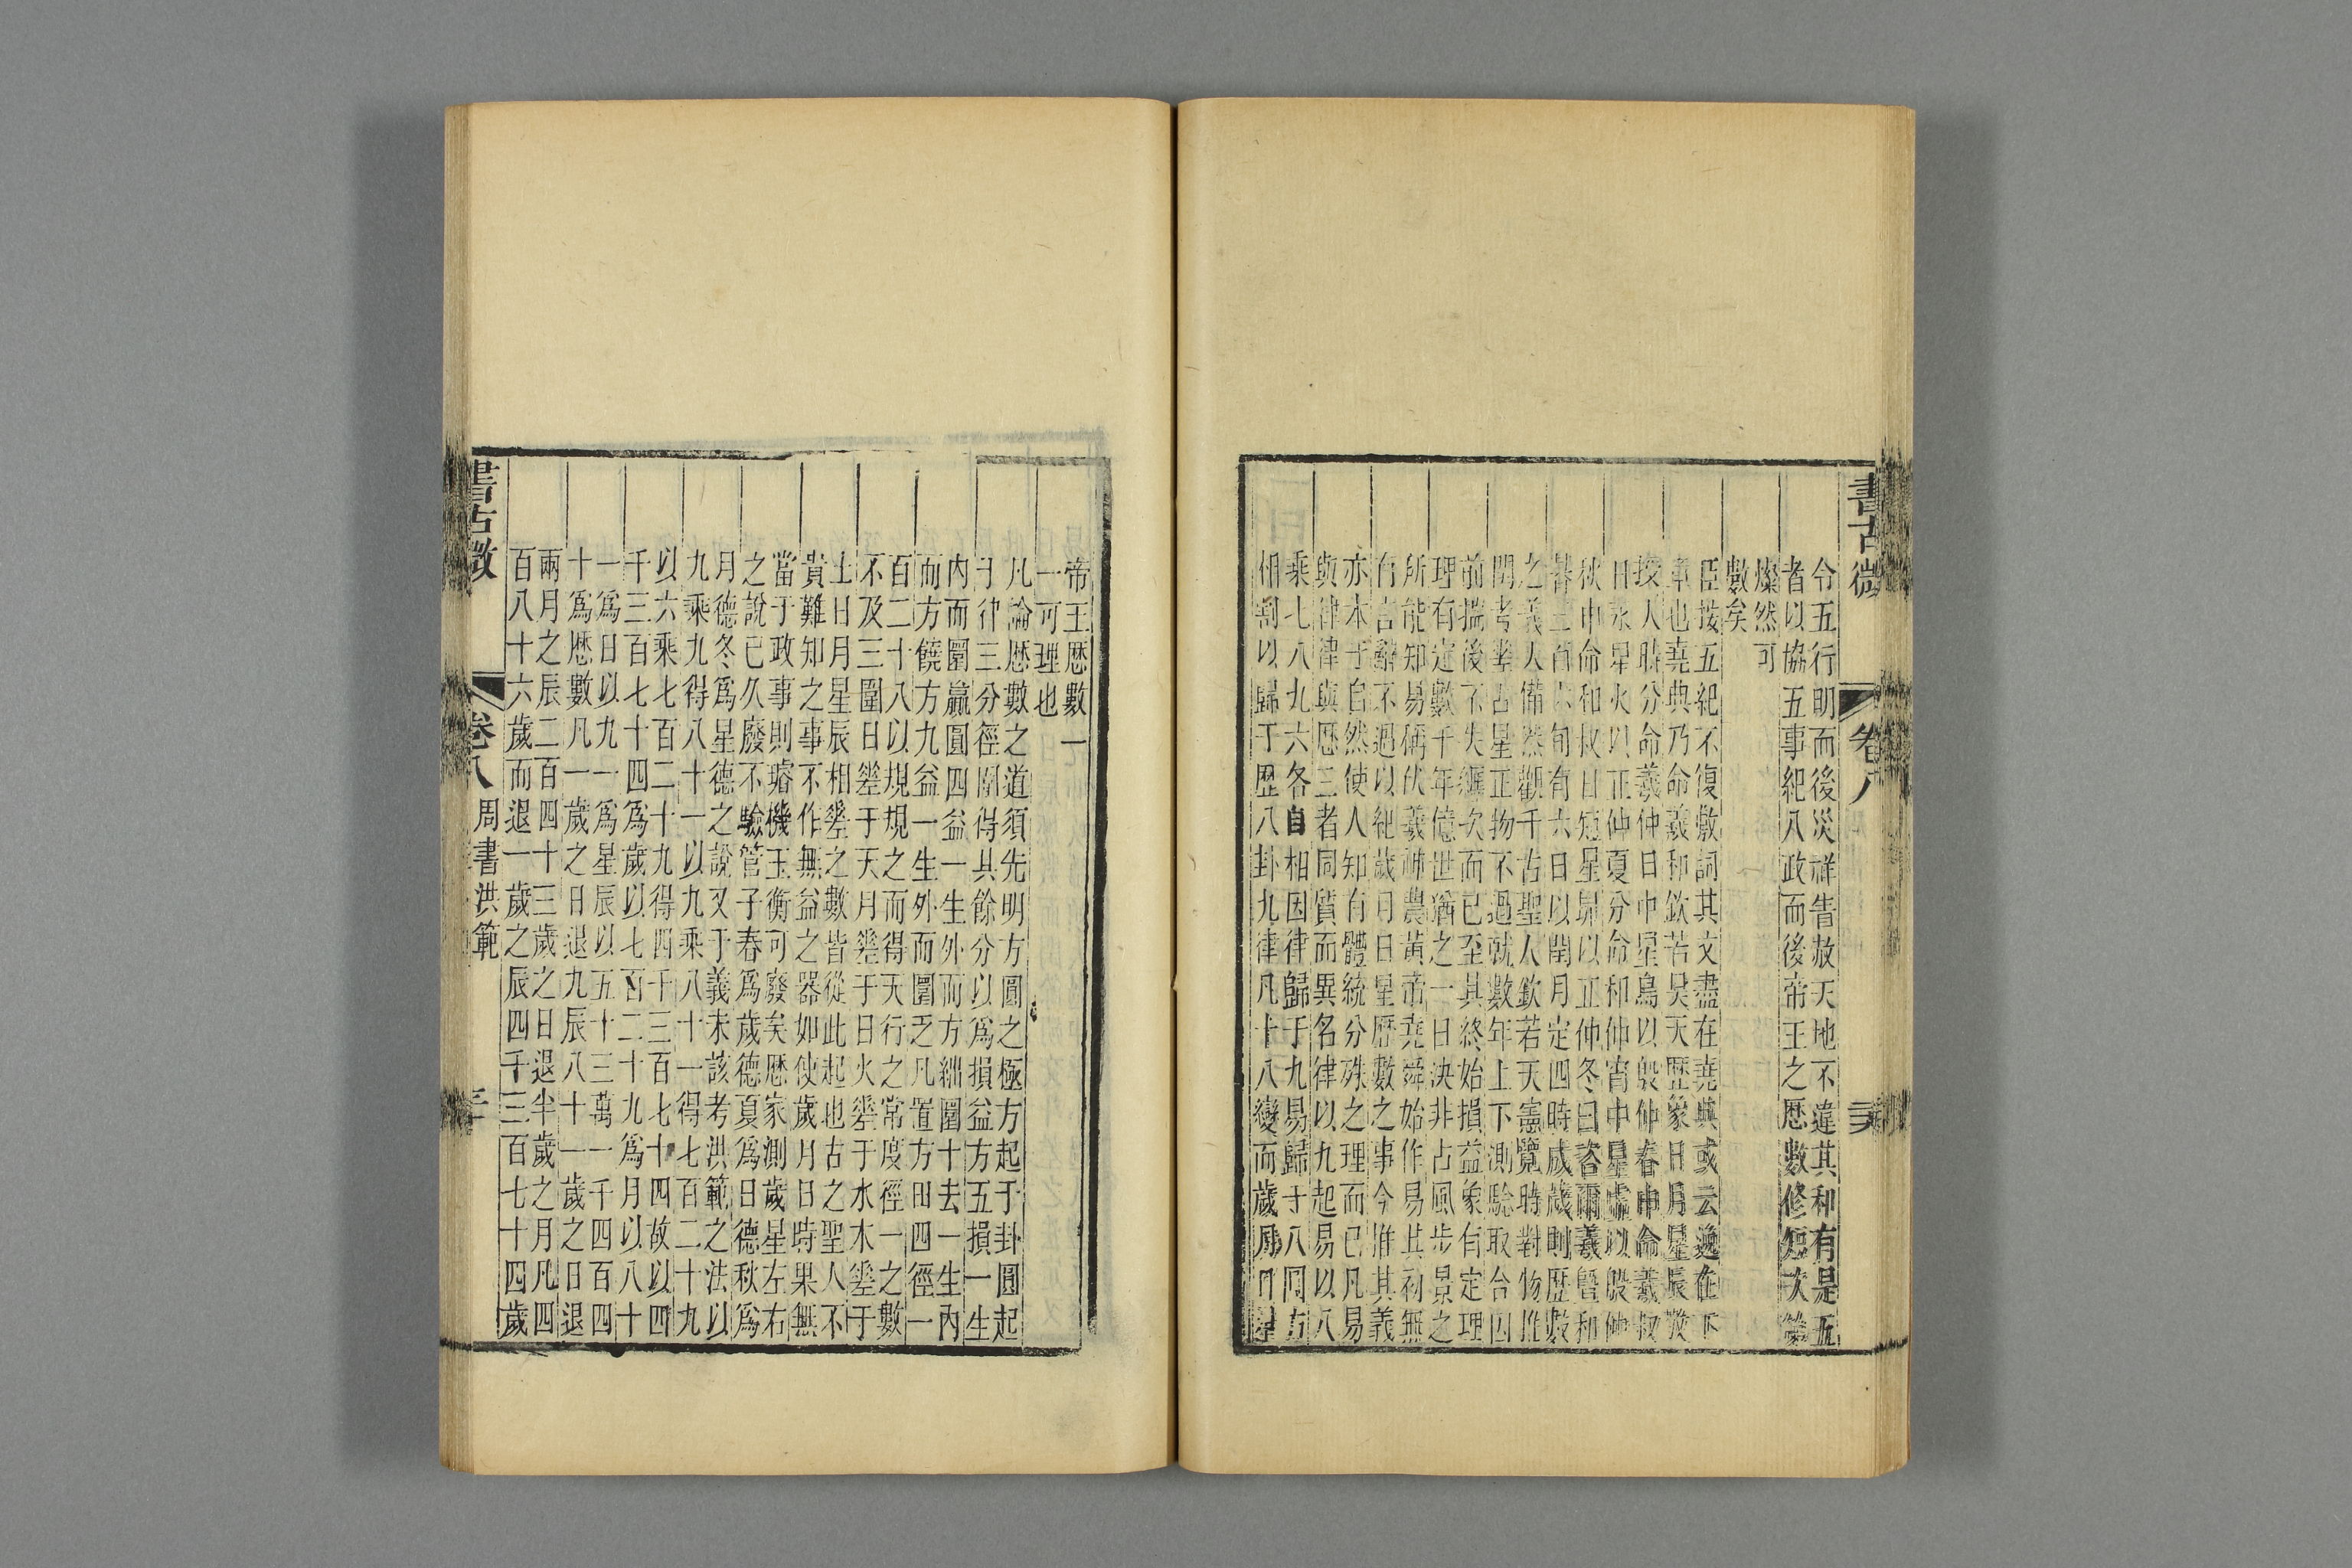 書古微
卷八
令五行明而後災祥眚赦天地不違其和有是五
者以協五事紀八政而後帝王之厯數修短次第
燦然可
數矣
臣按五紀不復敷詞其文盡在堯典或云逸在下
章也堯典乃命羲和欽若昊天歷象日月星辰敬
授人時分命羲仲日中星鳥以殷仲春申命羲叔
日永星火以正仲夏分命和仲宵中星虛以殷仲
秋申命和叔日短星昴以正仲冬曰咨爾羲曁和
朞三百六旬有六日以閏月定四時成歲則歷數
之義大備然觀千古聖人欽若天憲覽時對物推
閏考業占星正物不過就數年上下測驗取合四
前揣後不失纏次而已至其終始損益象有定理
理有定數千年億世猶之一日決非占風步景之
所能知易稱伏羲神農黃帝堯舜始作易其初無
有言辭不過以紀歲月日星歷數之事今推其義
亦本于自然使人知有體統分殊之理而已凡易
與律律與厯三者同質而異名律以九起易以八
乘七八九六各自相因律歸于九易歸于八同方
相割以歸于歷八卦九律凡十八變而歲月日星
帝王厯數一
一可理也
凡論厯數之道須先明方圓之極方起于卦圓起
于律三分徑圍得其餘分以爲損益方五損一生
內而圍羸圓四益一生外而方絀圍十去一生內
而方饒方九益一生外而圍乏凡置方田四徑一
百二十八以規規之而得天行之常度徑一之數
不及三圍日差于天月差于日火差于水木差于
土日月星辰相差之數皆從此起也古之聖人不
貴難知之事不作無益之器如使歲月日時果無
當于政事則璿機玉衡可廢矣厯家測歲星左右
之說已久廢不驗管子春爲歲德夏爲日德秋爲
月德冬爲星德之說又于義未該考洪範之法以
九乘九得八十一以九乘八十一得七百二十九
以六乘七百二十九得四千三百七十四故以四
千三百七十四爲歲以七百二十九爲月以八十
一爲日以九一爲星辰以五十三萬一千四百四
十爲厯數凡一歲之日退九辰八十一歲之日退
兩月之辰二百四十三歲之日退半歲之月凡四
百八十六歲而退一歲之辰四千三百七十四歲
書古微
卷八
周書洪範